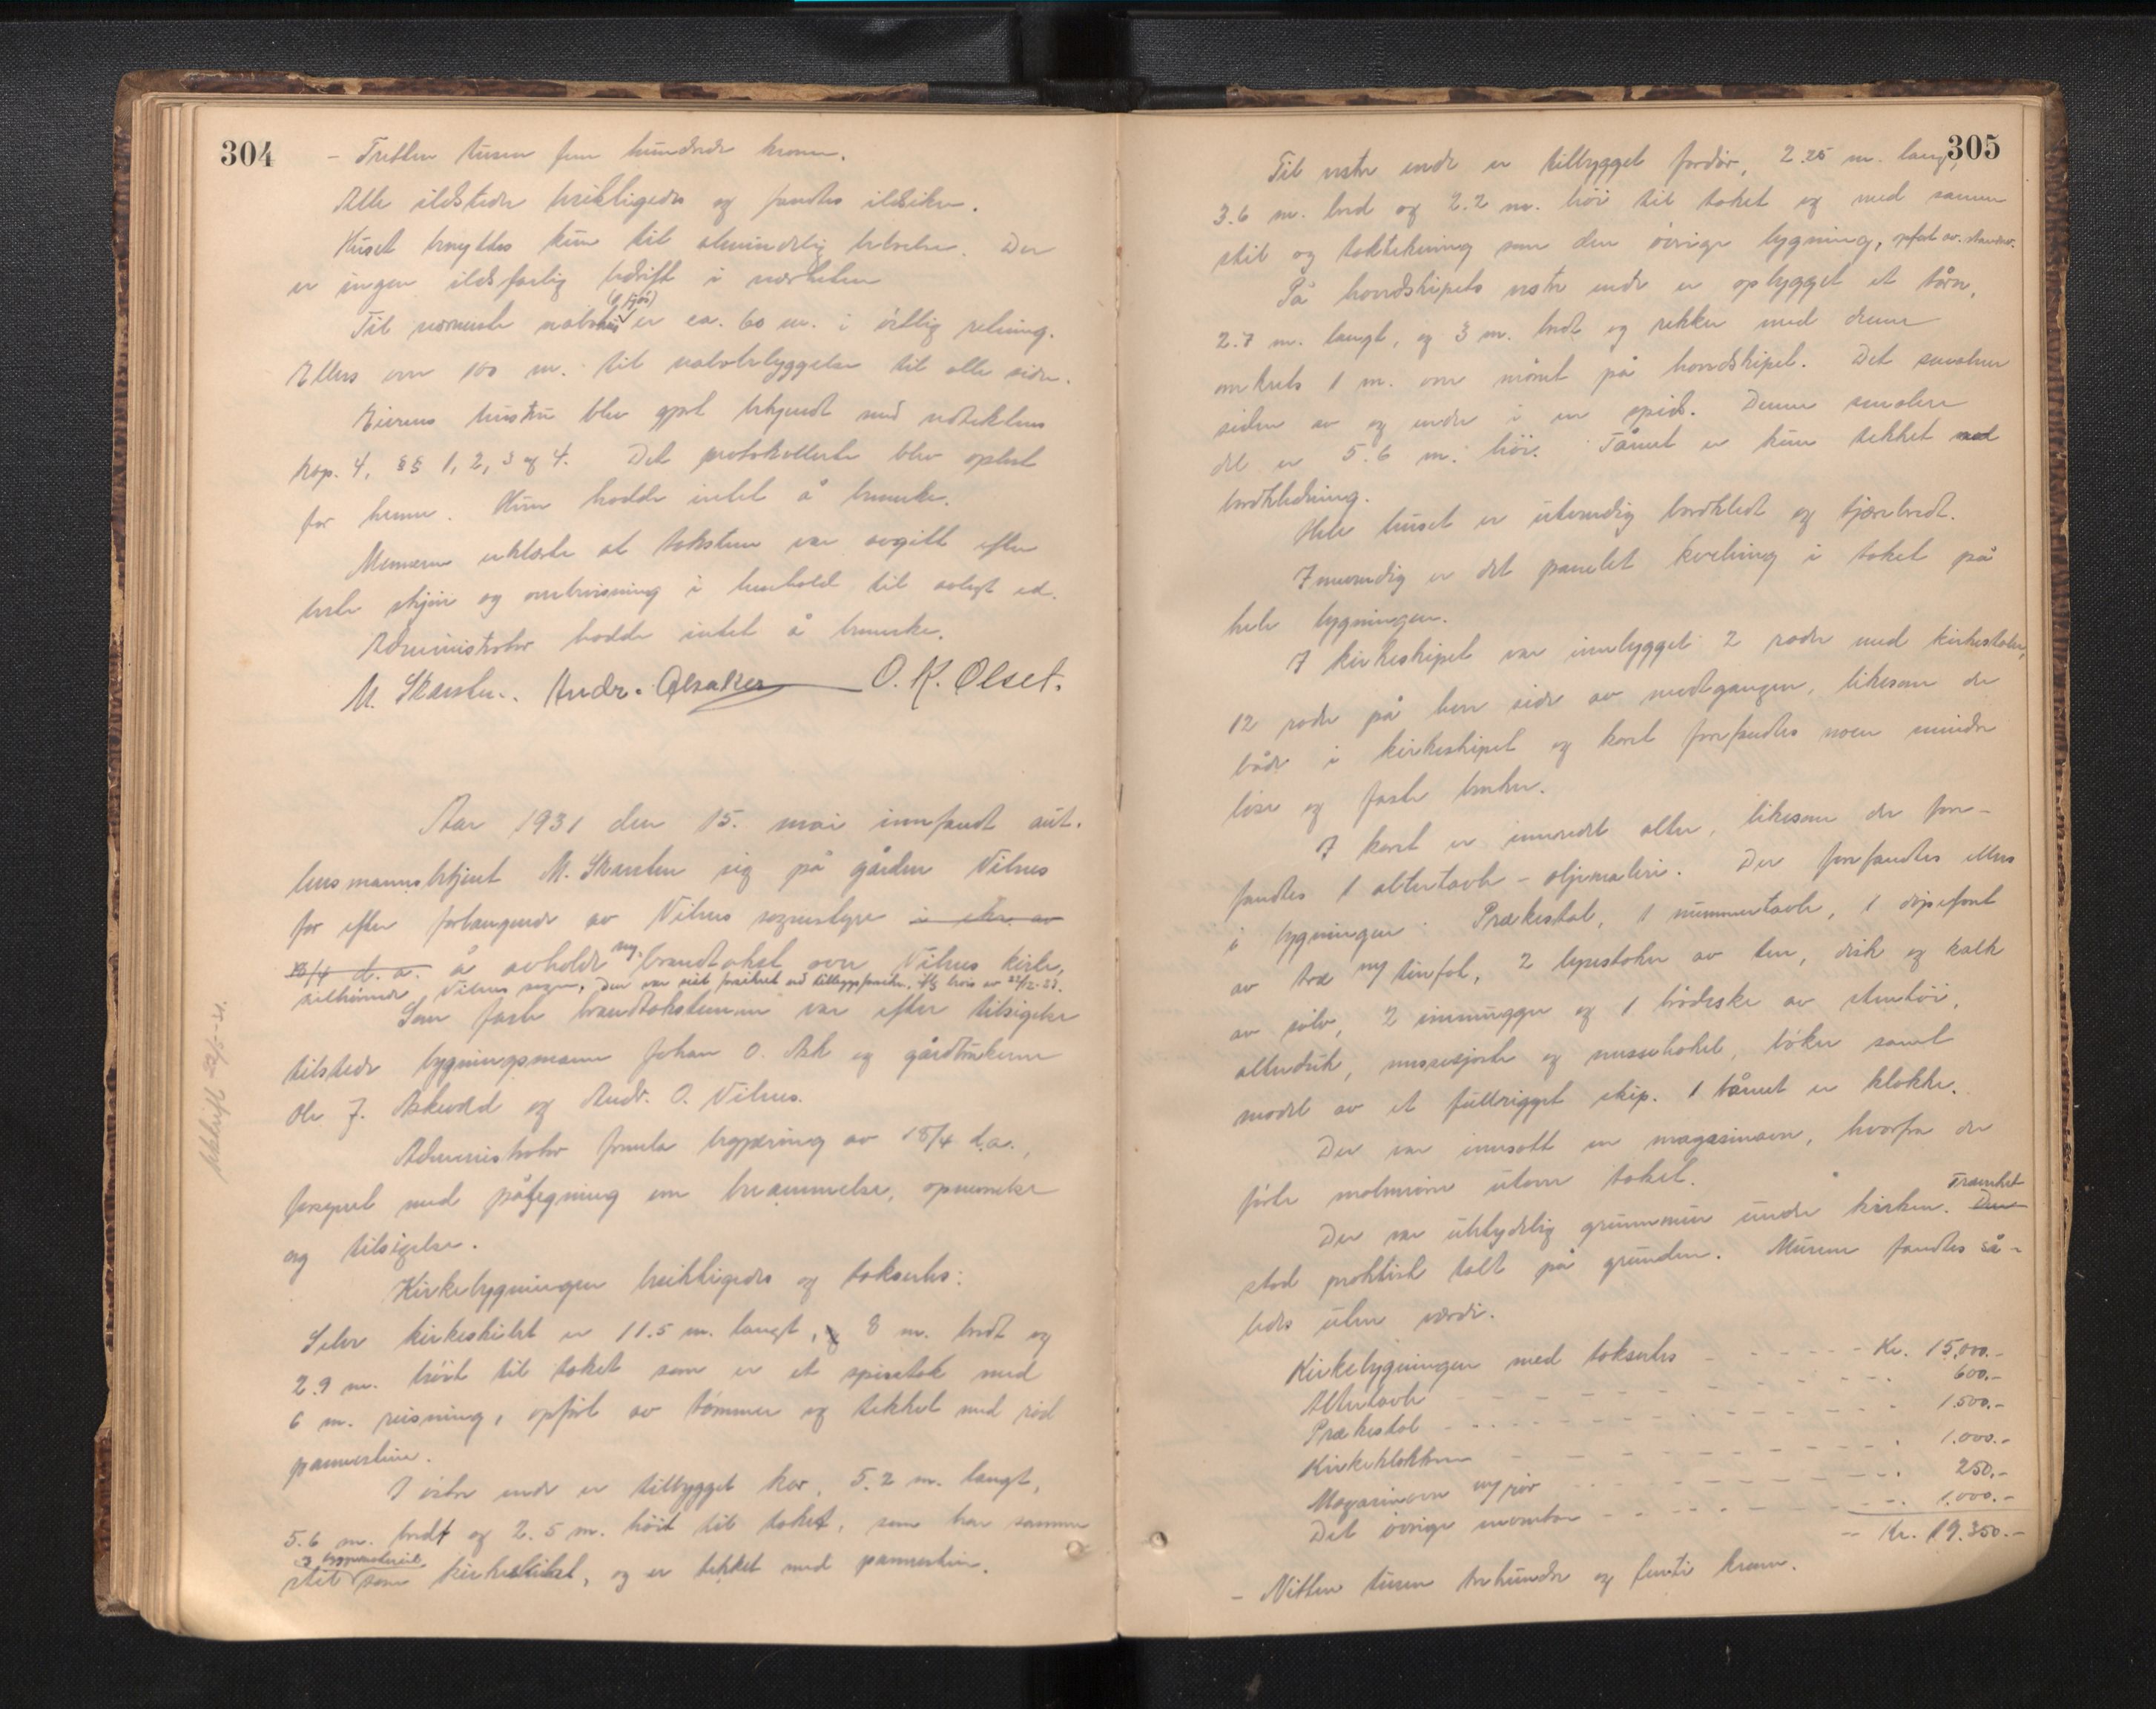 304
- Tretten tusen fem hundrede kroner.
Alle ildsteder besiktigedes og fandtes ildsikre.
Huset benyttes kun til almindelig beboelse. Der
er ingen ildsfarlig bedrift i nærheten
(1 fjøs)
Til nærmeste nabohus er ca. 60 m. i östlig retning.
Ellers over 100 m. til nabobebyggelse til alle sider.
Eierens hustru blev gjort bekjendt med vedtektenes
kap. 4, §§ 1, 2, 3 og 4. Det protokollerte blev oplest
for henne. Hun hadde intet å bemerke.
Mennene erklærte at taksten var avgitt efter
beste skjön og overbevisning i henhold til avlagt ed.
Administrator hadde intet å bemerke.
M. Skarsten. Andr. Alsaker O. K. Olset.
Aar 1931 den 15. mai innfandt aut.
lensmannsbetjent M. Skarsten sig på gården Vilnes
for efter forlangende av Vilnes sognestyre i skr. av
18/4 d. a. å avholde ny brandtakst over Vilnes kirke,
tilhörende Vilnes sogn, Der var sist forsikret ved tilleggsforsikr.
Som faste brandtakstmenn var efter tilsigelse
tilstede bygningsmann Johan O. Ask og gårdbrukerne
Ole J. Askvold og Andr. O. Vilnes.
Administrator fremla begjæring av 18/4 d.a.,
forsynt med påtegning om berammelse, opnevnelse
og tilsigelse.
Kirkebygningen besiktigedes og takseredes:
Selve kirkeskibet er 11.5 m. langt, 8 m. bredt og
2.9 m. höit til taket som er et spisetak med
6 m. reisning, opfört av tömmer og tekket med röd
pannesten.
I östre ende er tilbygget kor, 5.2 m. langt,
5.6 m. bredt og 2.5 m. höit til taket, som har samme
stil som kirkeskibet, og er tekket med pannesten.
Utskrift 22/5-31.
305
Til vestre ende er tilbygget fordör, 2.25 m. lang,
3.6 m. bred og 2.2 m. höi til taket og med samme
stil og taktekning som den övrige bygning, opfört av
På hovedskipets vestre ende er opbygget et tårn,
2.7 m. langt, og 3 m. bredt og rekker med denne
omkrets 1 m. over mönet på hovedskipet. Det smalner
siden av og ender i en spids. Denne smalere
del er 5.6 m. höi. Tårnet er kun tekket med
bordkledning.
Hele huset er utvendig bordkledt og tjærebredt.
Innvendig er det panelet hvelving i taket på
hele bygningen.
I kirkeskipet var innbygget 2 rader med kirkestoler,
12 rader på hver side av midtgangen, likesom der
både i kirkeskipet og koret forefandtes noen mindre
löse og faste benker.
I koret er innredet alter, likesom der fore-
fandtes 1 altertavle - oljemaleri. Der forefandtes ellers
i bygningen: Prækestol, 1 nummertavle, 1 döpefont
av tre m/ tinfat, 2 lysestaker av tin, disk og kalk
av sölv, 2 vinmugger og 1 brödeske av stentöi,
alterduk, messeskjorte og messehakel, böker samt
modell av et fullrigget skip. I tårnet er klokke.
Der var innsatt en magasinovn, hvorfra der
förte malmrör utover taket.
Der var ubetydelig grunnmur under kirken. Træverket
stod praktisk talt på grunden. Muren fandtes så-
ledes uten verdi.
Kirkebygningen med takseredes - - - - - - Kr. 15,000.-
Altertavle - - - - - 600.-
Prækestol - - - - - 1.500.-
Kirkeklokken - - - - - 1.000.-
Magasinovn m/ rör - - - - - 250.-
Det övrige inventar - - - - - 1.000.-
-- Kr. 19.350.-
- Nitten tusen trehundre og femti kroner.